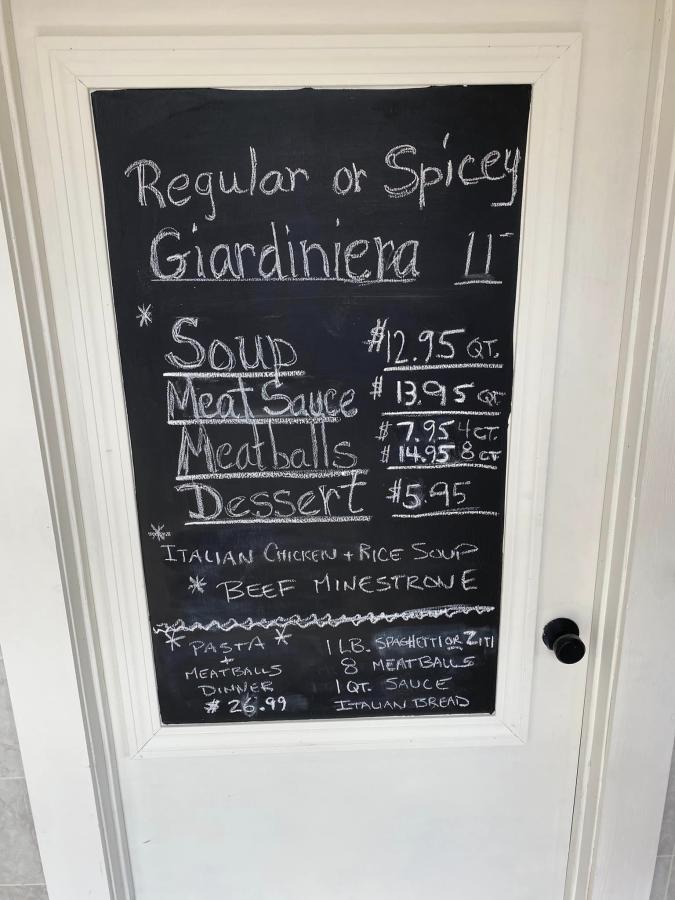 Regular or Spicey
Giardiniera 11-
* Soup $12.95 QT.
Meat Sauce $13.95 QT
Meatballs $7.95 4 CT.
$14.95 8 CT
Dessert $5.95
* ITALIAN CHICKEN + RICE SOUP
* BEEF MINESTRONE
* PASTA *
+
MEATBALLS
DINNER
$26.99
1 LB. SPAGHETTI OR ZITI
8 MEATBALLS
1 QT. SAUCE
ITALIAN BREAD